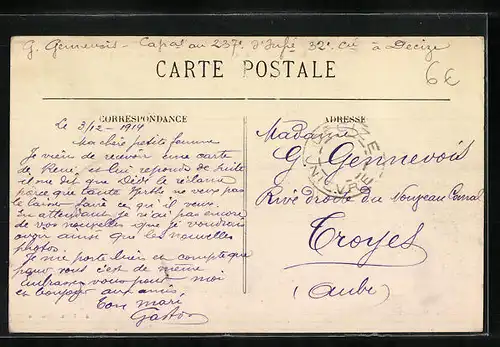 G. Gennevois - Capal au 237e d'Infie 32e Cie à Decize
CARTE POSTALE
6€
CORRESPONDANCE
ADRESSE
Le 3/12 - 1914
Ma chère petite femme
Je vien de recevoir une carte
de René et lui responds de suite
il me dit que Dédé le réclame
parce que tante Berthe ne veux pas
le laisser faire ce qu'il veux.
En attendant je n'ai pas encore
de vos nouvelles que je voudrais
avoir ainsi que les nouvelles
photos.
Je me porte bien et compte que
pour vous c'est de même
embrasses vous pour moi
et bonjour aux amis
Ton mari
Gaston
Madame
G Gennevois
Rive Droite du Nouveau Canal
Troyes
(Aube)